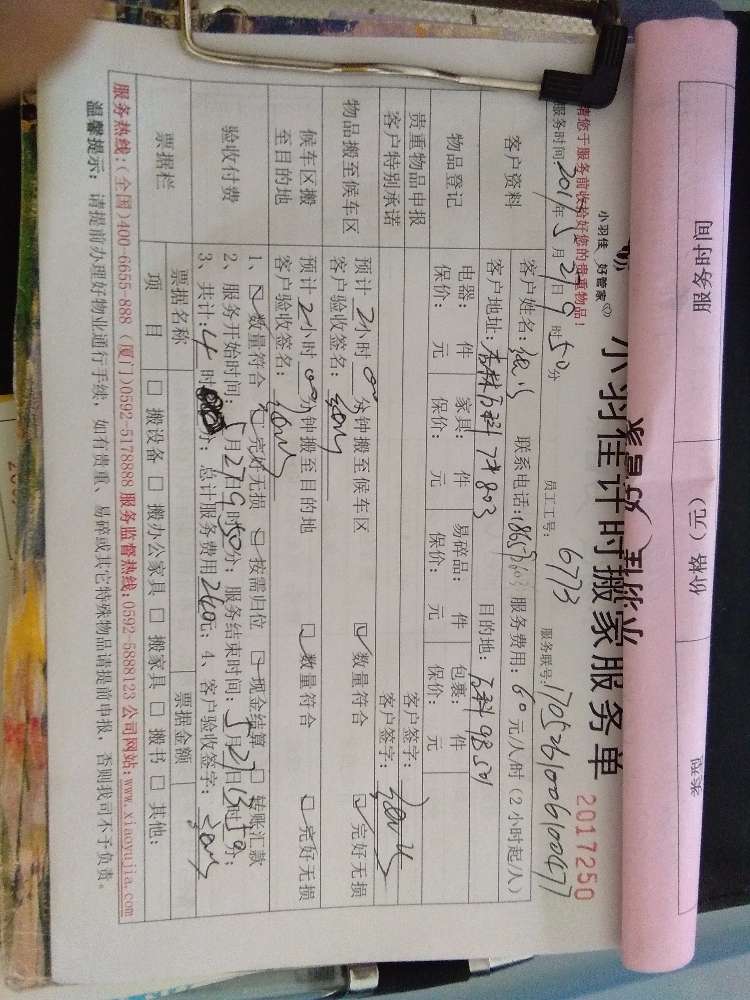 服务时间
价格（元）
类型
小羽佳 好管家
小羽佳计时搬家服务单
2017250
请您于服务前收拾好您的贵重物品！
服务时间：2017年5月27日9时50分
员工工号：6773
服务联号：
客户资料
客户姓名：
联系电话：
服务费用：60元/人/时（2小时起/人）
客户地址：
目的地：
物品登记
电器： 件 家具： 件 易碎品： 件 包裹： 件
保价： 元 保价： 元 保价： 元 保价： 元
贵重物品申报
客户签字：
客户特别承诺
客户签字：
物品搬至候车区
预计2小时00分钟搬至候车区 ☑数量符合 ☑完好无损
客户验收签名：
候车区搬至目的地
预计2小时00分钟搬至目的地 ☑数量符合 ☑完好无损
客户验收签名：
验收付费
1、☑数量符合 ☑完好无损 ☑按需归位 ☑现金结算 □转账汇款
2、服务开始时间：5月27日9时50分；服务结束时间：5月27日13时50分；
3、共计：4时 分；总计服务费用240元；4、客户验收签字：
票据栏
票据名称
票据金额
项 目
□ 搬设备 □ 搬办公家具 □ 搬家具 □ 搬书 □ 其他：
服务热线：(全国)400-6655-888 (厦门)0592-5178888 服务监督热线:0592-5888123 公司网站:www.xiaoyujia.com
温馨提示：请提前办理好物业通行手续，如有贵重、易碎或其它特殊物品请提前申报，否则我司不予负责。